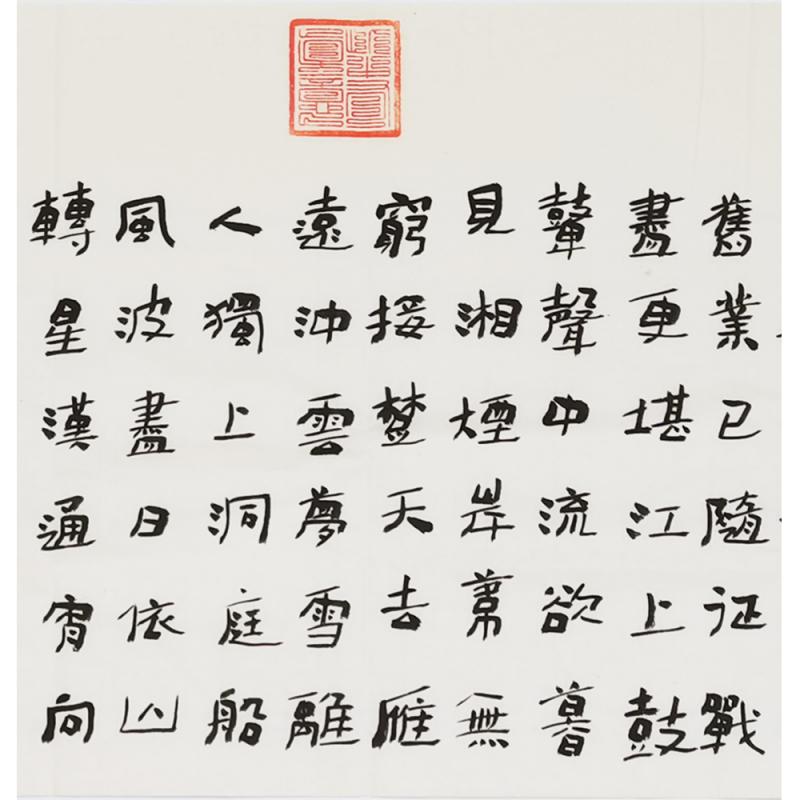 舊業已隨征戰
盡更堪江上鼓
鼙聲中流欲暮
見湘煙岸葦無
窮接楚天去雁
遠沖雲夢雪離
人獨上洞庭船
風波盡日依山
轉星漢通宵向